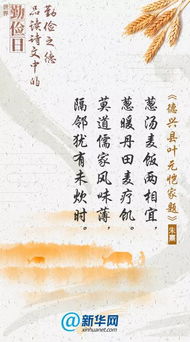 世界
勤俭日
勤俭之德
品读诗文中的
《德兴县叶元恺家题》
朱熹
葱汤麦饭两相宜，
葱暖丹田麦疗饥。
莫道儒家风味薄，
隔邻犹有未炊时。
@新华网